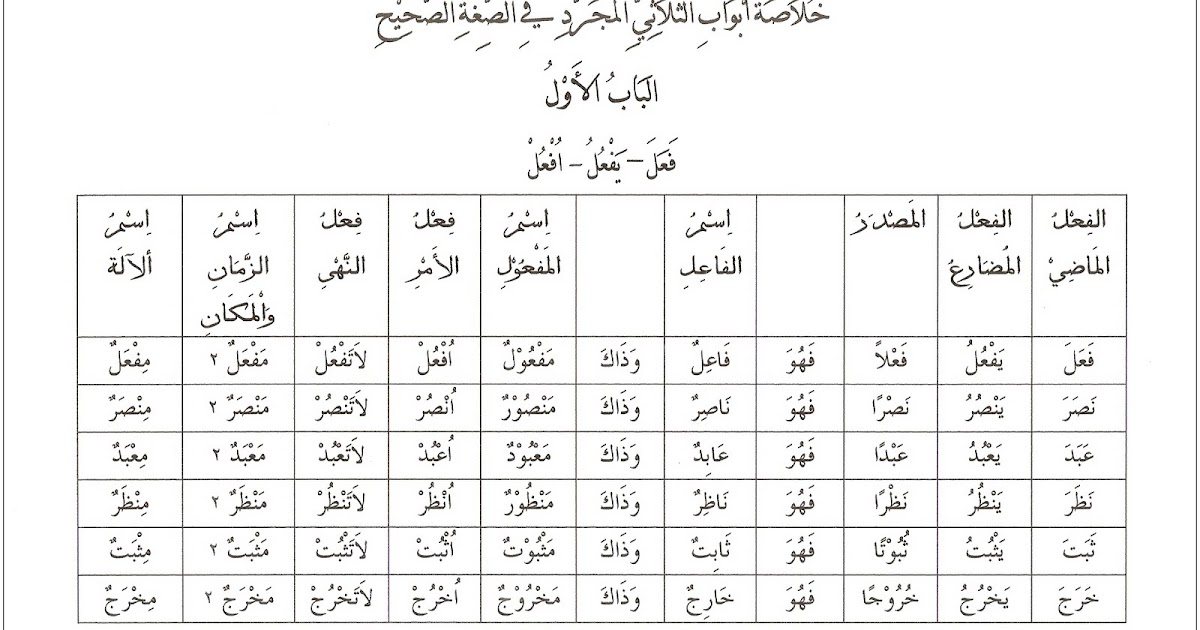 خُلَاصَةُ أَبْوَابِ الثُّلَاثِيِّ الْمُجَرَّدِ فِي الصِّيْغَةِ الصَّحِيْحِ
البَابُ الأَوَّلُ
فَعَلَ – يَفْعُلُ – اُفْعُلْ
الفِعْلُ المَاضِيْ | الفِعْلُ المُضَارِعُ | المَصْدَرُ | | اِسْمُ الفَاعِلِ | | اِسْمُ المَفْعُوْلِ | فِعْلُ الأَمْرِ | فِعْلُ النَّهْيِ | اِسْمُ الزَّمَانِ وَالْمَكَانِ | اِسْمُ ألآلَة
فَعَلَ | يَفْعُلُ | فَعْلاً | فَهُوَ | فَاعِلٌ | وَذَاكَ | مَفْعُوْلٌ | اُفْعُلْ | لاَتَفْعُلْ | مَفْعَلٌ ٢ | مِفْعَلٌ
نَصَرَ | يَنْصُرُ | نَصْرًا | فَهُوَ | نَاصِرٌ | وَذَاكَ | مَنْصُوْرٌ | اُنْصُرْ | لاَتَنْصُرْ | مَنْصَرٌ ٢ | مِنْصَرٌ
عَبَدَ | يَعْبُدُ | عَبْدًا | فَهُوَ | عَابِدٌ | وَذَاكَ | مَعْبُوْدٌ | اُعْبُدْ | لاَتَعْبُدْ | مَعْبَدٌ ٢ | مِعْبَدٌ
نَظَرَ | يَنْظُرُ | نَظْرًا | فَهُوَ | نَاظِرٌ | وَذَاكَ | مَنْظُوْرٌ | اُنْظُرْ | لاَتَنْظُرْ | مَنْظَرٌ ٢ | مِنْظَرٌ
ثَبَتَ | يَثْبُتُ | ثُبُوْتًا | فَهُوَ | ثَابِتٌ | وَذَاكَ | مَثْبُوْتٌ | اُثْبُتْ | لاَتَثْبُتْ | مَثْبَتٌ ٢ | مِثْبَتٌ
خَرَجَ | يَخْرُجُ | خُرُوْجًا | فَهُوَ | خَارِجٌ | وَذَاكَ | مَخْرُوْجٌ | اُخْرُجْ | لاَتَخْرُجْ | مَخْرَجٌ ٢ | مِخْرَجٌ